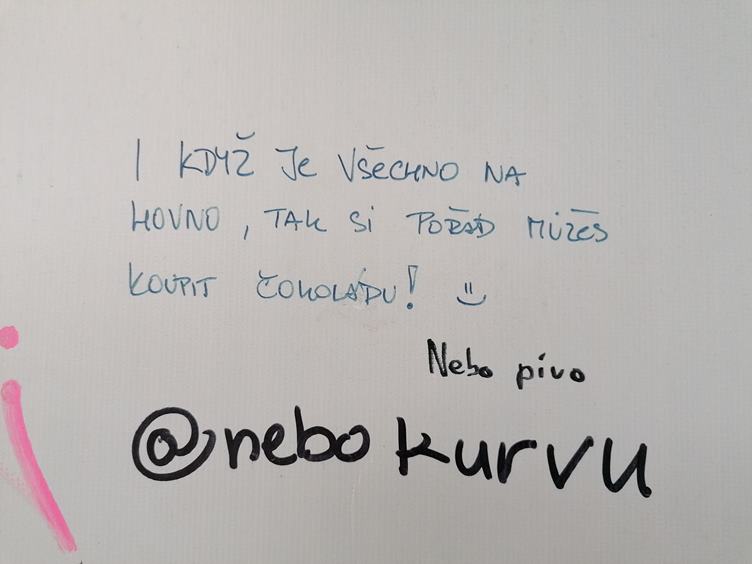 I KDYŽ JE VŠECHNO NA
HOVNO, TAK SI POŘÁD MŮŽEŠ
KOUPIT ČOKOLÁDU! :)
Nebo pivo
@nebo kurvu